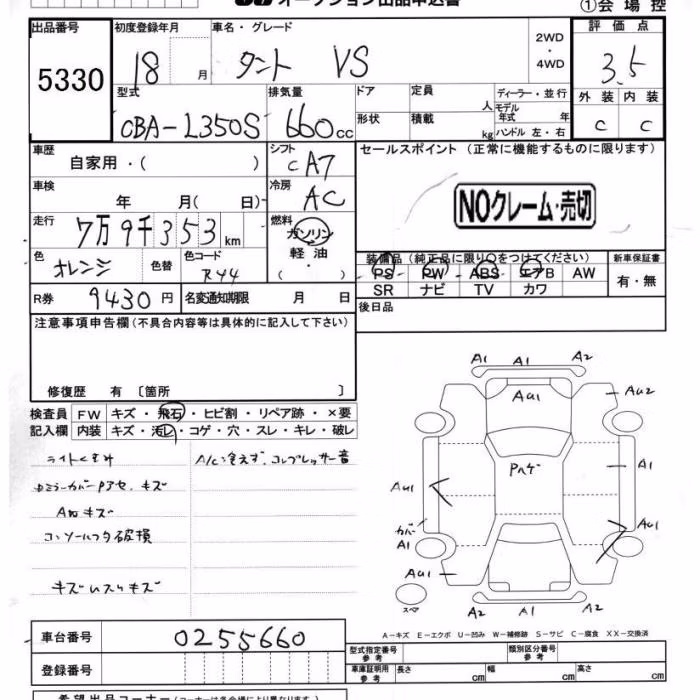 オークション出品申込書
①会場控
出品番号
5330
初度登録年月
18 月
車名・グレード
タント VS
2WD
・
4WD
評価点
3.5
外装 内装
C C
型式
CBA-L350S
排気量
660 cc
ドア
定員
人
形状
積載
kg
ディーラー・並行
モデル
年式 年
ハンドル 左・右
車歴
自家用・( )
シフト
CA7
セールスポイント (正常に機能するものに限ります)
NOクレーム・売切
車検
年 月( 日)
冷房
AC
走行
7万9千353 km
燃料
ガソリン
・
軽油
( )
色
オレンジ
色替
色コード
R44
装備品 (純正品に限り○をつけてください)
PS PW ABS エアB AW
SR ナビ TV カワ
新車保証書
有・無
R券
9430円
名変通知期限 月 日
後日品
注意事項申告欄(不具合内容等は具体的に記入して下さい)
修復歴 有 〔箇所 〕
検査員
記入欄
FW キズ・飛石・ヒビ割・リペア跡・×要
内装 キズ・汚レ・コゲ・穴・スレ・キレ・破レ
ライトくもり
A/C冷えず、コンプレッサー音
ドミラーカバーPアセ、キズ
A加キズ
コンソールフタ破損
キズ
A1 A1 A2
AU1
AU2
A1
Pハゲ
AU1
カバー
A1
AU1
AU1
スペア
A2 A1 A2
A-キズ E-エクボ U-凹み W-補修跡 S-サビ C-腐食 XX-交換済
車台番号
0255660
登録番号
型式指定番号
参考
類別区分番号
参考
車庫証明用
参考
長さ cm
幅 cm
高さ cm
希望出品コーナー(コーナーは各会場により異なります)